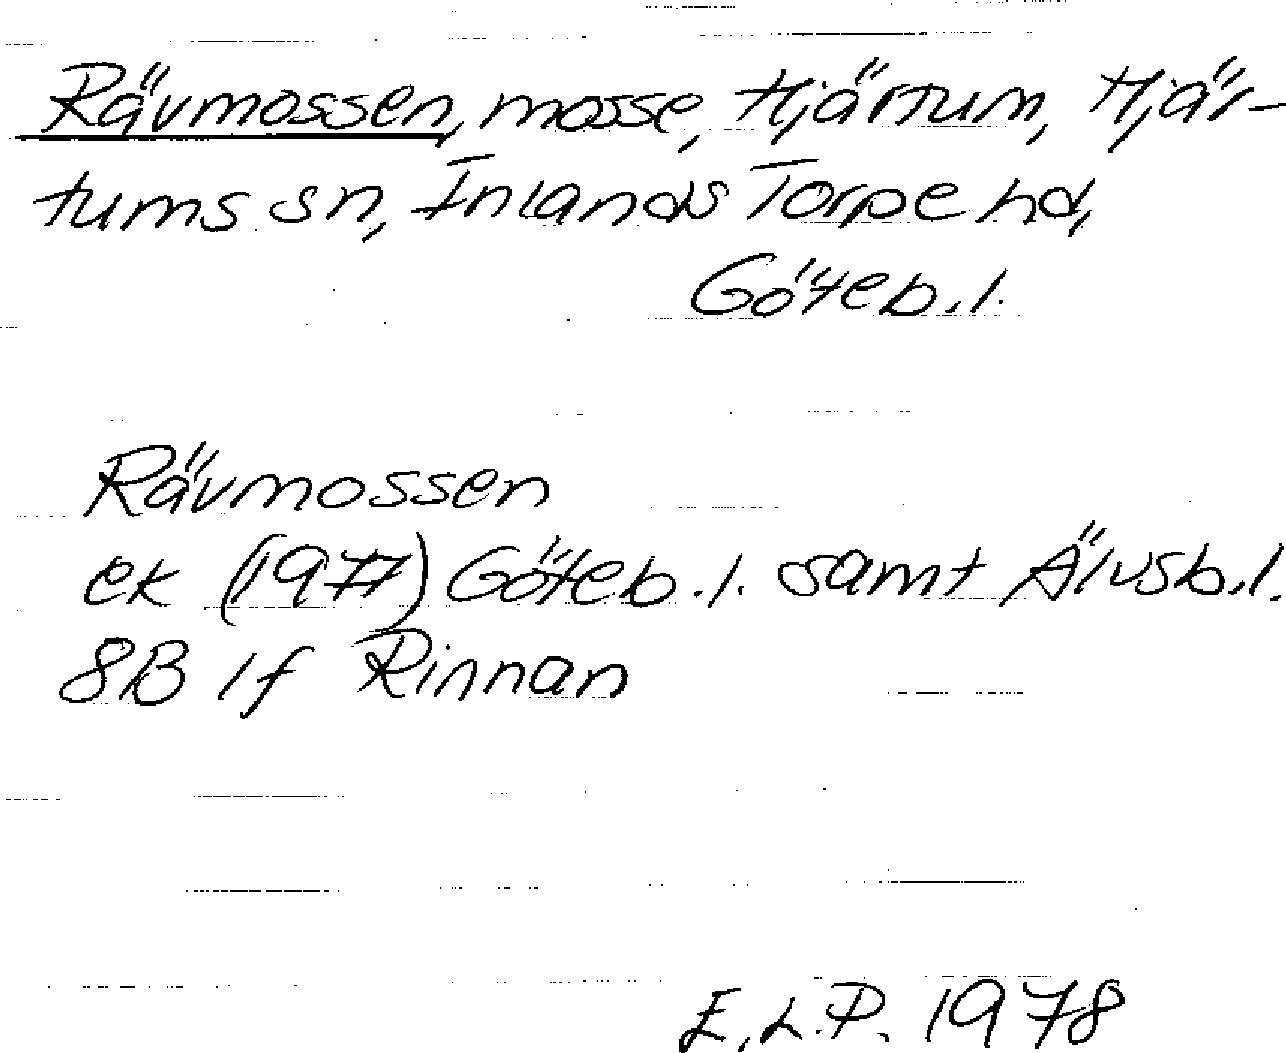 Rävmossen, mosse, Hjärtum, Hjär-
tums sn, Inlands Torpe hd,
Göteb. l.
Rävmossen
ek (1977) Göteb. l. samt Älvsb. l.
8B 1f Rinnan
E.L.P. 1978